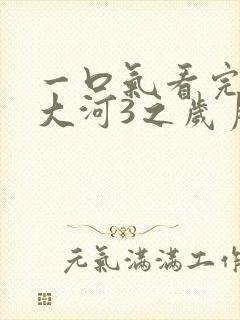 一口氣看完
大河3之歲月
元氣滿滿工作